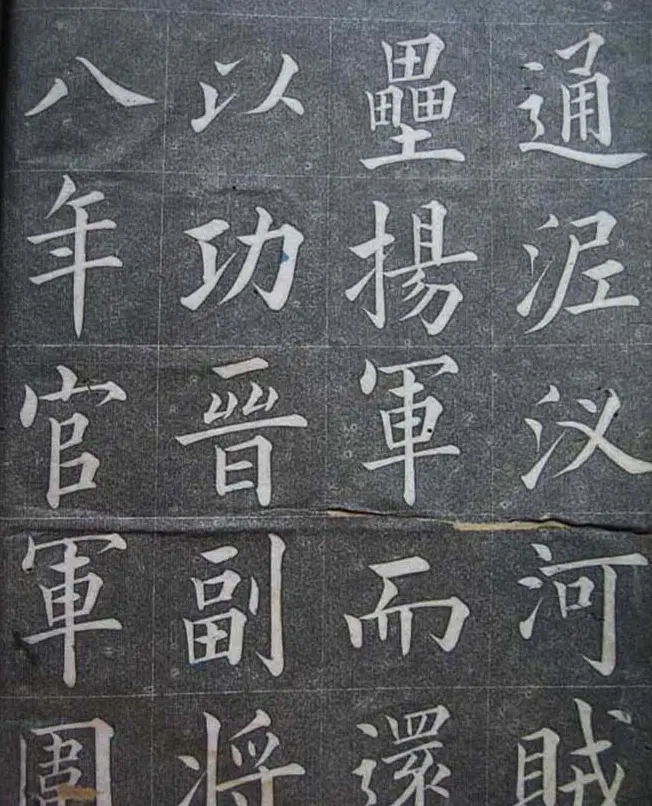 通泥汊河賊
壘揚軍而還
以功晉副將
八年官軍圍